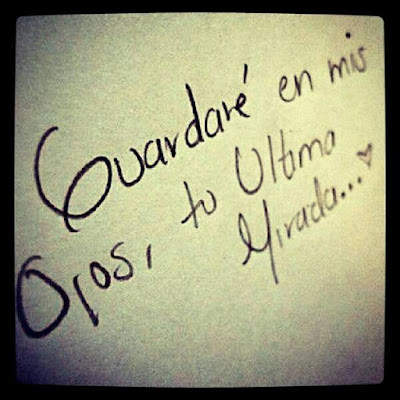 Guardaré en mis
Ojos, tu Ultima
Mirada...♥